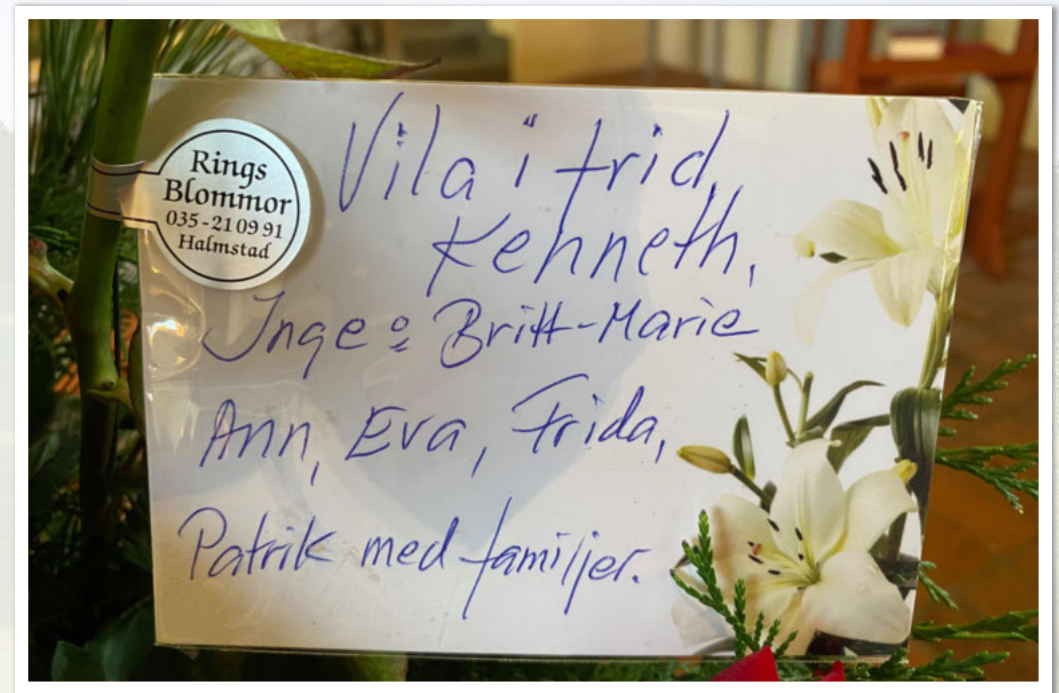 Rings
Blommor
035-21 09 91
Halmstad
Vila i frid,
Kenneth,
Inge o Britt-Marie
Ann, Eva, Frida,
Patrik med familjer.